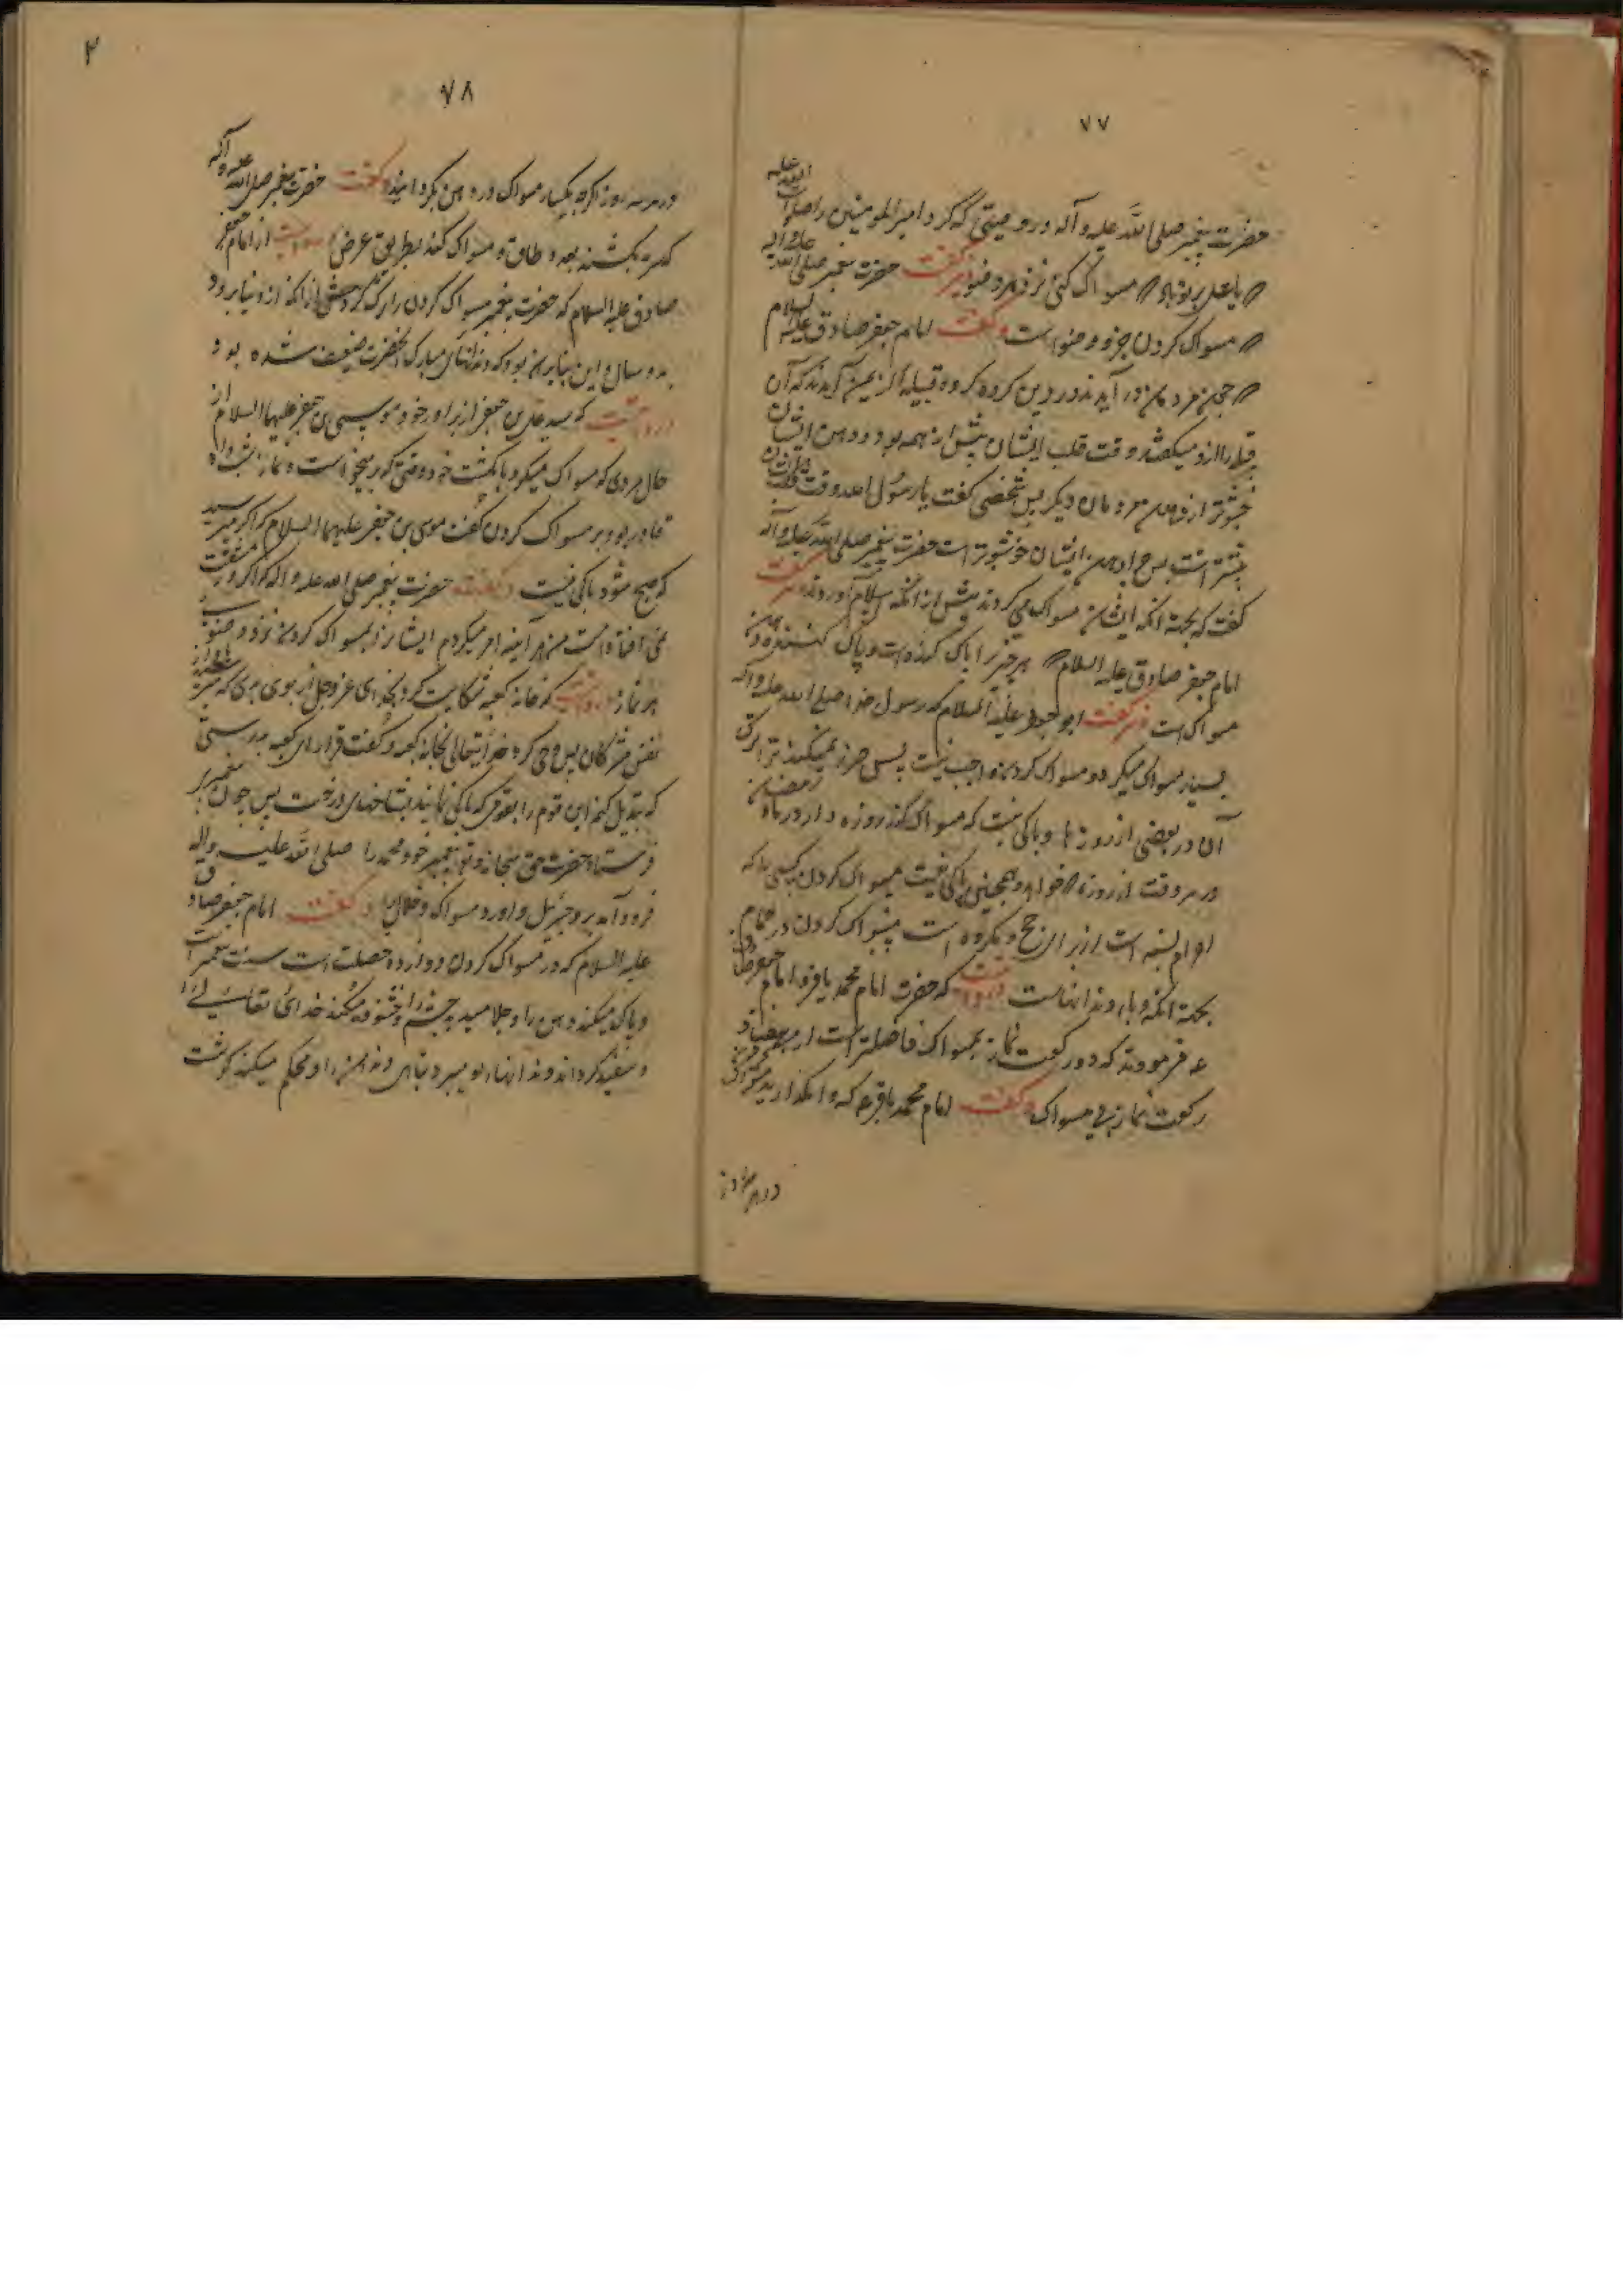 ۷۷
حضرت پیغمبر صلی الله علیه و آله در وصیتی که کرد امیرالمومنین را صلوات الله علیه
که یا علی بر تو باد که مسواک کنی نزد هر وضو و نیز گفت حضرت پیغمبر صلی الله علیه و اله
که مسواک کردن جزو وضو است و گفت امام جعفر صادق علیه السلام
که چون مردمان در آیند در دین کرده کروه قبیله از یمن آمدند که آن
قبیله را ازد میکفتند رقت قلب ایشان بیش از همه بود و دهن ایشان
خوشبوتر از دهن مردمان دیکر پس شخصی کفت یا رسول الله رقت قلب
بیشتر است بچه جهة دهن ایشان خوشبوتر است حضرت پیغمبر صلی الله علیه و آله
گفت که بجهة آنکه ایشان مسواک می کردند پیش از آنکه اسلام آوردند و گفت
امام جعفر صادق علیه السلام که هر چیز را پاک کننده است و پاک کننده دهن
مسواک است و نیز گفت ابو علیه السلام که رسول خدا صلی الله علیه و اله
بسیار مسواک میکرد و مسواک کردن واجب نیست پس ضرر نمیکند ترا ترک
آن در بعضی از روزها و باکی نیست که مسواک کند روزه دار در ماه رمضان
در هر وقت از روز که خواهد و همچنین باکی نیست مسواک کردن کسی را که
احرام بسته است از برای حج و مکروه است مسواک کردن در حمام
بجهة آنکه وبا، دندانهاست و روایت که حضرت امام محمد باقر و امام جعفر صادق
ع فرمودند که دو رکعت نماز بمسواک فاضلتر است از هفتاد
رکعت نماز بی مسواک و گفت امام محمد باقر ع که وامگذارید مسواک کردن
در هر سه روز
۷۸
در هر سه روز اگر چه یکبار مسواک در دهن بگردانید و گفت حضرت پیغمبر صلی الله علیه و آله
که سرمه بکشید بعدد طاق و مسواک کنید بطریق عرض از امام جعفر
صادق علیه السلام که حضرت پیغمبر مسواک کردن را ترک کرد پیش از آنکه از دنیا برود
بدو سال و این بنا بر آن بود که دندانهای مبارک آنحضرت ضعیف شده بود
و روایت که سید علی بن جعفر از برادر خود موسی بن جعفر علیهما السلام از
حال مردی که مسواک میکرد بانکشت خود وقتی که برمیخواست نماز شب و او
قادر بود بر مسواک کردن گفت موسی بن جعفر علیهما السلام که اگر میترسید
که صبح شود باکی نیست و گفت حضرت پیغمبر صلی الله علیه و اله که اگر در مشقت
نمی افتاد امت من هر آینه امر میکردم ایشانرا بمسواک کردن نزد وضوی
هر نماز و روایت که خانه کعبه شکایت کرد بخدای عز و جل از بوی بدی که میرسید باو از
نفس مشرکان پس وحی کرد خدایتعالی بخانه کعبه و گفت قرار دار ای کعبه بدرستی
که تبدیل کنم این قوم را بقومی که پاکی نمایند بشاخهای درخت پس چون
فرستاد حضرت حق سبحانه و تع پیغمبر خود محمد را صلی الله علیه و اله
فرود آمد بر او جبرئیل و اورد مسواک و خلال و گفت امام جعفر صادق
علیه السلام که در مسواک کردن دوازده خصلت است سنت پیغمبر است
و پاک میکند دهن را و جلا میدهد چشم را و خشنود میکند خدای تعالی را
و سفید گرداند دندانها را و میبرد تباهی دندان را و محکم میکند گوشت